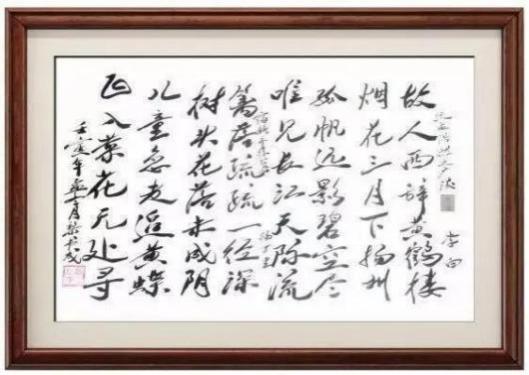 故人西辞黄鹤楼
送孟浩然之广陵
李白
烟花三月下扬州
孤帆远影碧空尽
唯见长江天际流
宿新市徐公店
篱落疏疏一经深
杨万里
树头花落未成阴
儿童急走追黄蝶
飞入菜花无处寻
壬寅年